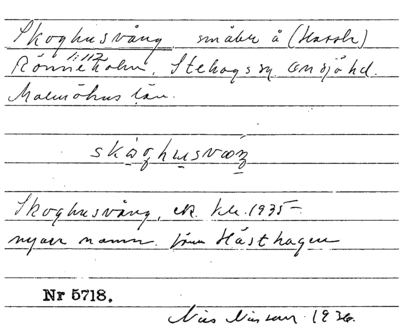 Skoghusvång, småbr å (Hassle)
1:117
Rönneholm, Stehags sn. Onsjö hd.
Malmöhus län.
skåoghusvæŋ
Skoghusvång, ek. kle. 1935 –
nyare namn. förr Hästhagen
Nr 5718.
Nils Nilsson. 1936.